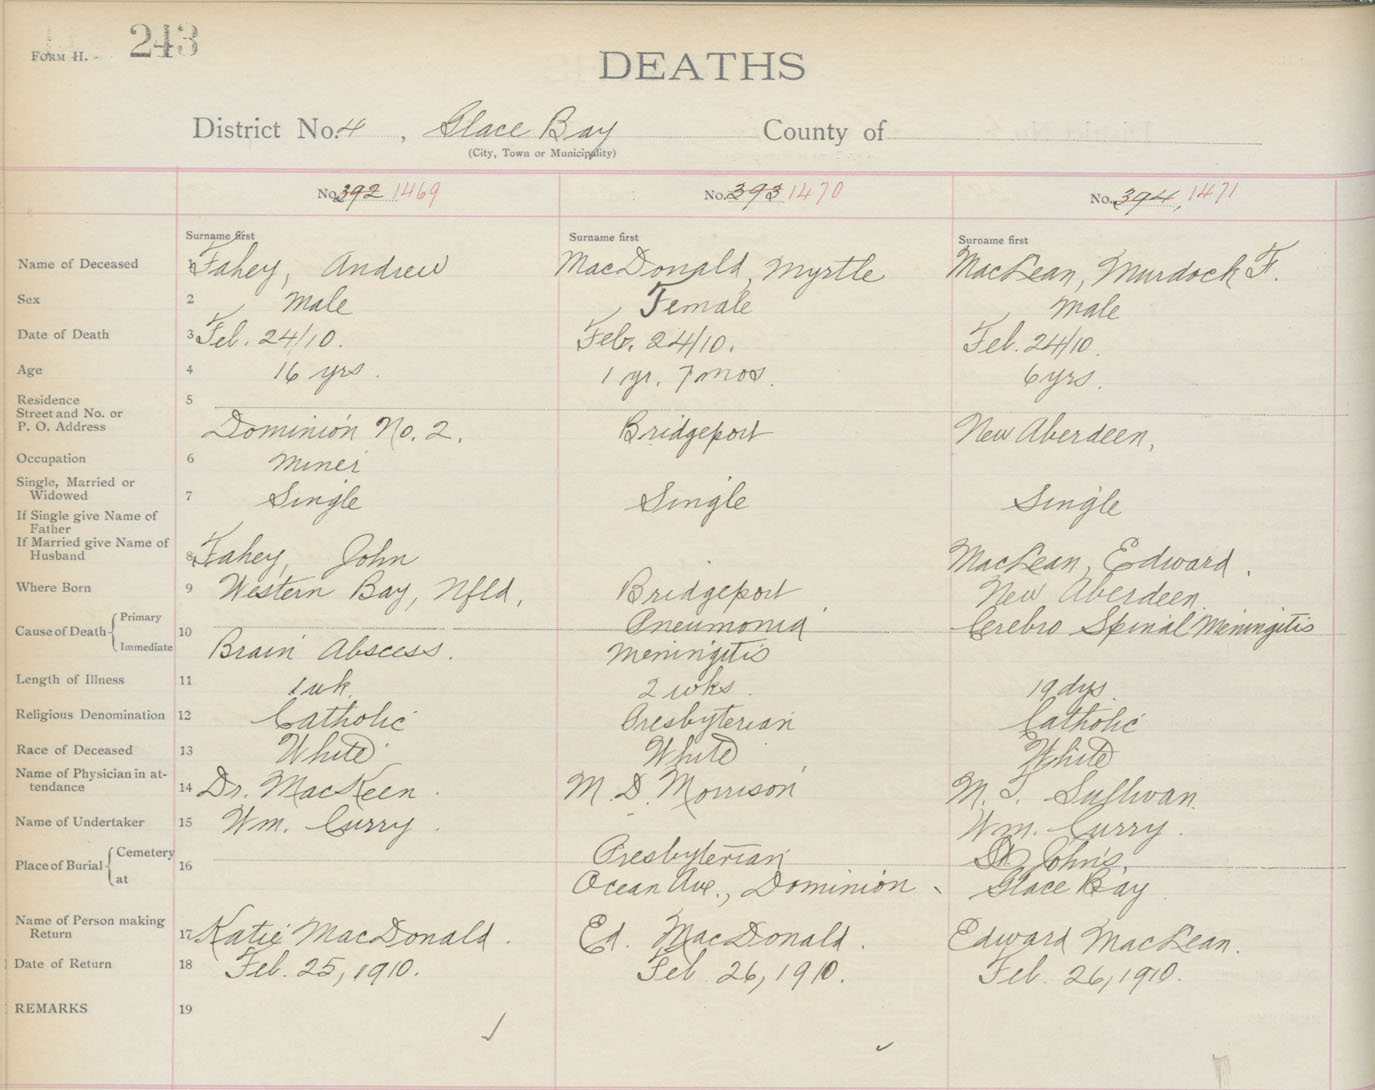 FORM H. 243
DEATHS
District No. 4, Glace Bay County of
(City, Town or Municipality)
No. 392 1469 No. 393 1470 No. 394, 1471
Surname first Surname first Surname first
Name of Deceased 1 Fahey, Andrew MacDonald, Myrtle MacLean, Murdock F.
Sex 2 Male Female Male
Date of Death 3 Feb. 24/10. Feb. 24/10. Feb. 24/10.
Age 4 16 yrs. 1 yr. 7 mos. 6 yrs.
Residence 5
Street and No. or
P. O. Address Dominion No. 2. Bridgeport New Aberdeen,
Occupation 6 Miner
Single, Married or
Widowed 7 Single Single Single
If Single give Name of
Father
If Married give Name of
Husband 8 Fahey, John MacLean, Edward.
Where Born 9 Western Bay, Nfld, Bridgeport New Aberdeen
Cause of Death Primary 10 Pneumonia Cerebro Spinal Meningitis
Immediate Brain Abscess. Meningitis
Length of Illness 11 1 wk. 2 wks. 19 dys.
Religious Denomination 12 Catholic Presbyterian Catholic
Race of Deceased 13 White White White
Name of Physician in at-
tendance 14 Dr. MacKeen. M. D. Morrison M. T. Sullivan
Name of Undertaker 15 Wm. Curry. Wm. Curry.
Place of Burial Cemetery 16 Presbyterian St. John's,
at Ocean Ave., Dominion Glace Bay
Name of Person making
Return 17 Katie MacDonald. Ed. MacDonald. Edward MacLean.
Date of Return 18 Feb. 25, 1910. Feb 26, 1910. Feb. 26, 1910.
REMARKS 19